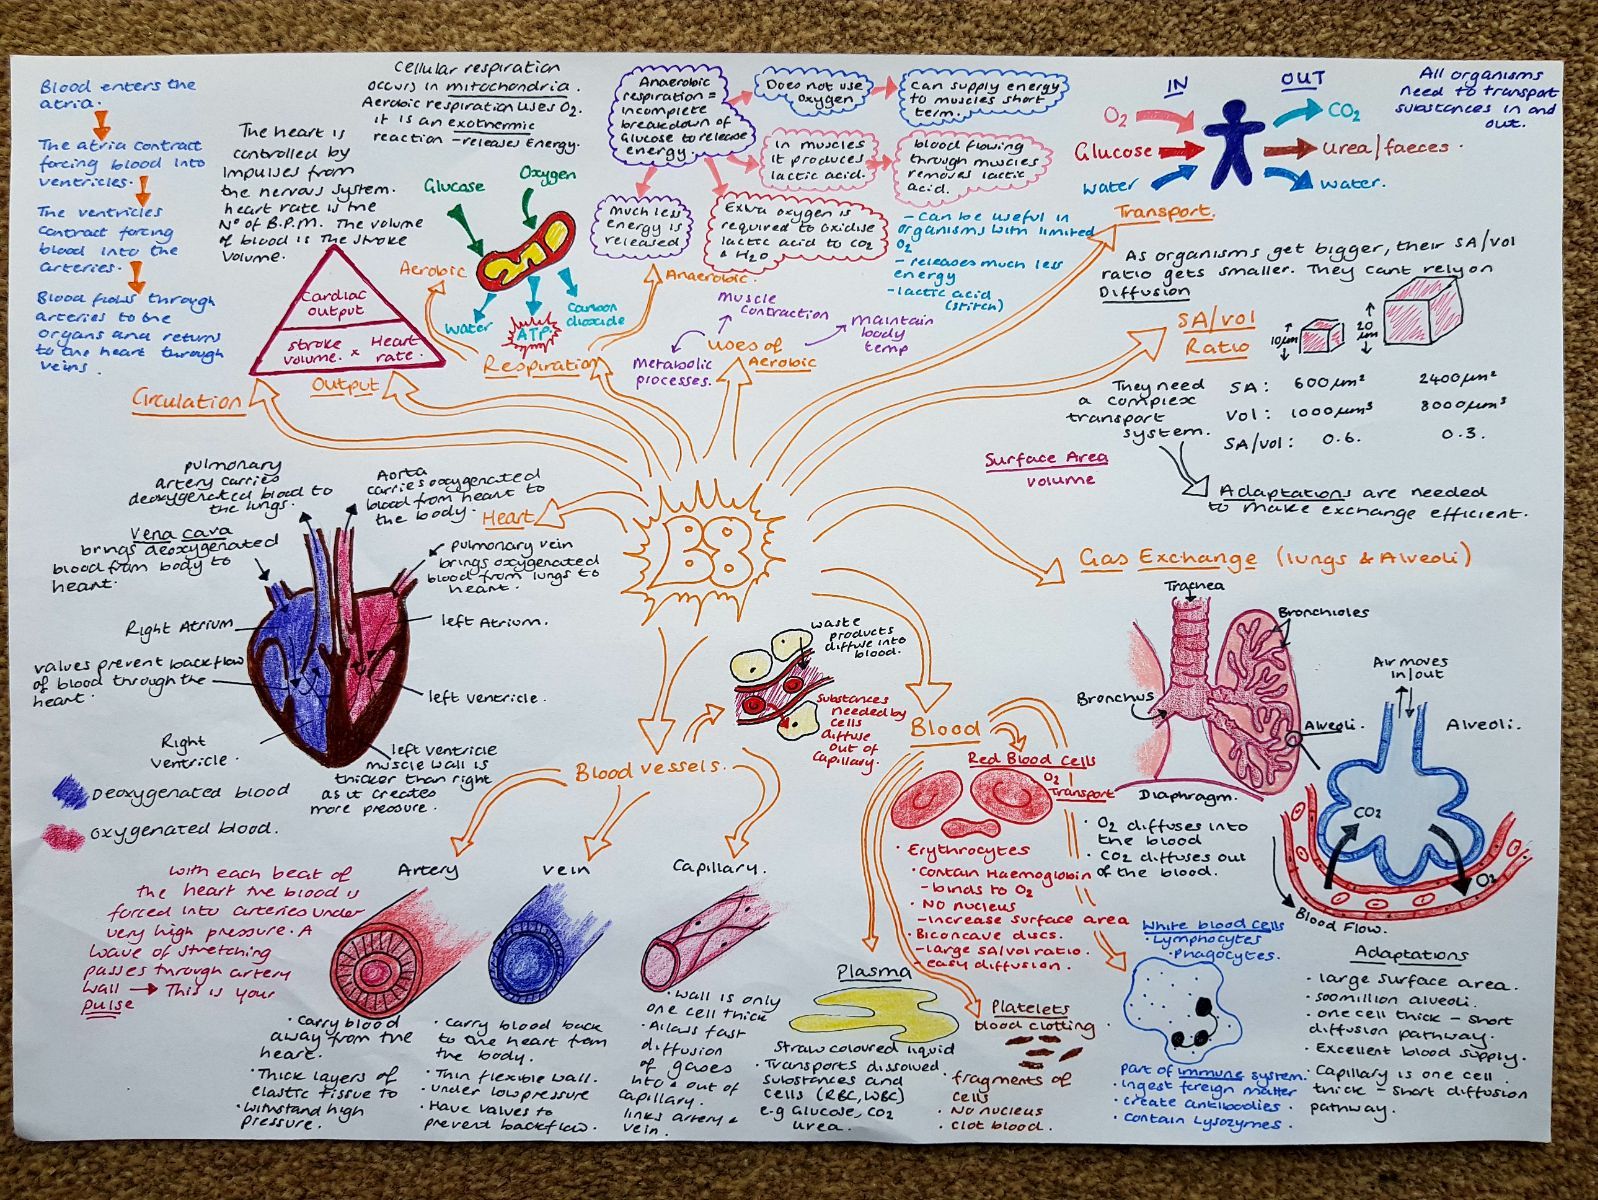 Blood enters the
atria.
The atria contract
forcing blood into
ventricles.
The ventricles
contract forcing
blood into the
arteries.
Blood flows through
arteries to the
organs and returns
to the heart through
veins.
Circulation
The heart is
controlled by
impulses from
the nervous system.
heart rate is the
Nº of B.P.M. The volume
of blood is the stroke
volume.
Cardiac
output
stroke
volume. × Heart
rate.
Output
Cellular respiration
occurs in mitochondria.
Aerobic respiration uses O2.
it is an exothermic
reaction - releases Energy.
Glucose
Oxygen
Aerobic
water
ATP.
Carbon
dioxide
Respiration
Anaerobic
respiration =
incomplete
breakdown of
Glucose to release
energy.
Does not use
oxygen
can supply energy
to muscles short
term.
in muscles
it produces
lactic acid.
blood flowing
through muscles
removes lactic
acid.
Much less
energy is
released
Extra oxygen is
required to oxidise
lactic acid to CO2
& H2O
Anaerobic.
- Can be useful in
organisms with limited
O2
- releases much less
energy
- lactic acid
(stitch)
muscle
contraction
maintain
body
temp
Metabolic
processes.
uses of
Aerobic
IN
OUT
O2
Glucose
water
CO2
urea/faeces.
water.
All organisms
need to transport
substances in and
out.
Transport.
As organisms get bigger, their SA/vol
ratio gets smaller. They cant rely on
Diffusion
SA/vol
Ratio
10µm
20
µm
They need
a complex
transport
system.
SA: 600µm² 2400µm²
Vol: 1000µm³ 8000µm³
SA/vol: 0.6. 0.3.
Surface Area
volume
Adaptations are needed
to make exchange efficient.
B8
pulmonary
artery carries
deoxygenated blood to
the lungs.
Aorta
carries oxygenated
blood from heart to
the body.
Heart
Vena cava
brings deoxygenated
blood from body to
heart.
pulmonary vein
brings oxygenated
blood from lungs to
heart.
Right Atrium
left Atrium.
valves prevent backflow
of blood through the
heart.
left ventricle.
Right
ventricle.
left ventricle
muscle wall is
thicker than right
as it creates
more pressure.
Deoxygenated blood
Oxygenated blood.
with each beat of
the heart the blood is
forced into arteries under
very high pressure. A
wave of stretching
passes through artery
wall → This is your
pulse
Blood vessels.
waste
products
diffuse into
blood.
Substances
needed by
cells
diffuse
out of
capillary.
Artery
vein
Capillary.
· Carry blood
away from the
heart.
· Thick layers of
elastic tissue to
· withstand high
pressure.
· Carry blood back
to the heart from
the body.
· Thin flexible wall.
· under low pressure
· Have valves to
prevent backflow.
· Wall is only
one cell thick
· Allows fast
diffusion
of gases
into & out of
capillary.
links artery &
vein.
Blood
Red Blood Cells
O2
Transport
· Erythrocytes
· Contain Haemoglobin
- binds to O2
· No nucleus
- increase surface area
· Biconcave discs.
- large sa/vol ratio.
- easy diffusion.
Plasma
Straw coloured liquid
· Transports dissolved
substances and
cells (RBC, WBC)
e.g Glucose, CO2
urea.
Platelets
blood clotting.
· fragments of
cells
· No nucleus
· Clot blood.
White blood cells
· Lymphocytes
· Phagocytes.
part of immune system.
· ingest foreign matter
· create antibodies.
· contain Lysozymes.
Gas Exchange (lungs & Alveoli)
Trachea
Bronchioles
Bronchus
Alveoli.
Diaphragm.
· O2 diffuses into
the blood
· CO2 diffuses out
of the blood.
Air moves
in/out
Alveoli.
CO2
O2
Blood Flow.
Adaptations
· large surface area.
· 500 million alveoli.
· one cell thick - short
diffusion pathway.
· Excellent blood supply.
· Capillary is one cell
thick - short diffusion
pathway.